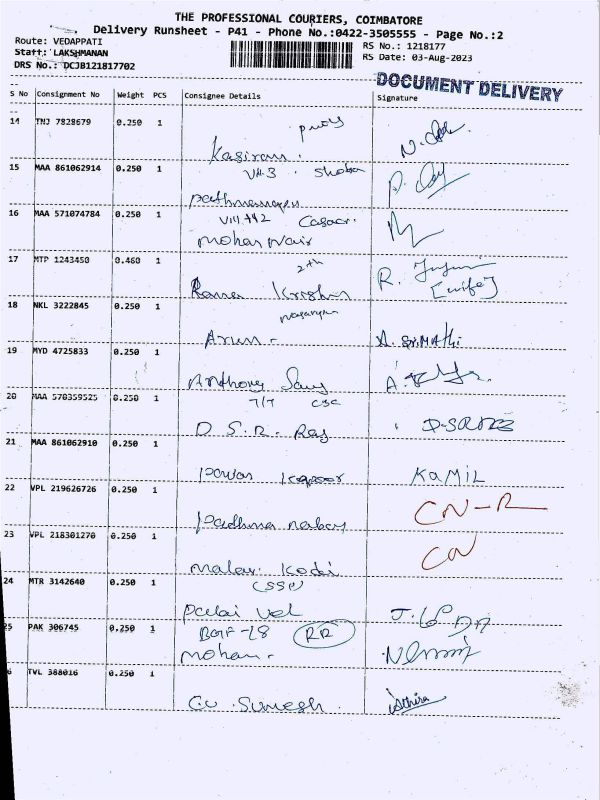 THE PROFESSIONAL COURIERS, COIMBATORE
Delivery Runsheet - P41 - Phone No.:0422-3505555 - Page No.:2
Route: VEDAPPATI
RS No.: 1218177
Staff: LAKSHMANAN
RS Date: 03-Aug-2023
DRS No.: DCJB121817702
DOCUMENT DELIVERY
S No Consignment No Weight PCS Consignee Details Signature
14 TNJ 7828679 0.250 1
Kasiram.
15 MAA 861062914 0.250 1
Shoba
16 MAA 571074784 0.250 1
Mohan Nair
17 MTP 1243450 0.460 1
2th
Rama Krishn R.
[wife]
18 NKL 3222845 0.250 1
Arun - A. SriMathi
19 MYD 4725833 0.250 1
Anthony Samy A.
20 MAA 570359525 0.250 1
7/7 CSC
D S. R. Raj
21 MAA 861062910 0.250 1
Pavan Kapoor KAMIL
22 VPL 219626726 0.250 1
CN-R
Padhma
23 VPL 218301270 0.250 1
CN
Malar. Kodi
24 MTR 3142640 0.250 1
(SSP)
Palai Vel
25 PAK 306745 0.250 1
BGF-L8 RR
Mohan -
6 TVL 388016 0.250 1
G.V. Sumesh. Athira